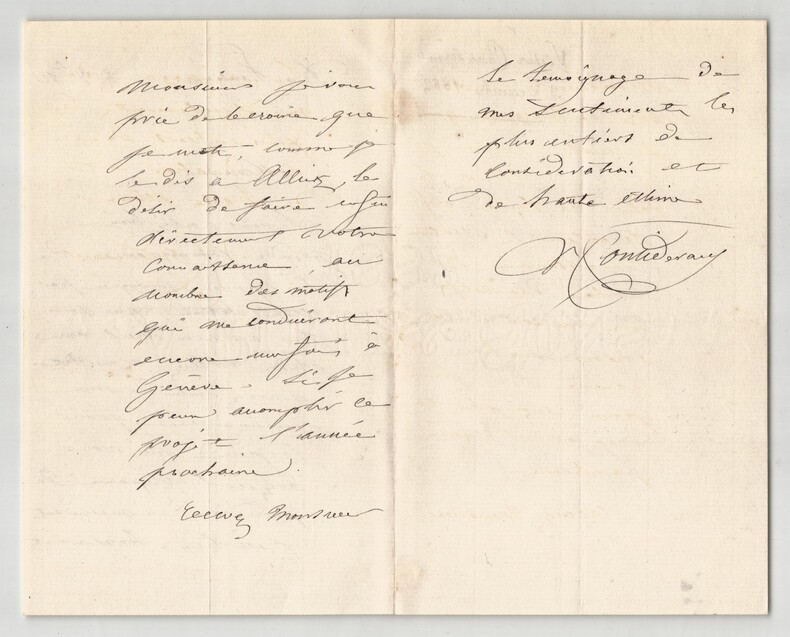 Monsieur je vous
prie de le croire que
je mets, comme je
le dis a Alliez, le
désir de faire enfin
directement votre
connaissance, au
nombre des motifs
qui me conduiront
encore une fois à
Genève. Si je
peux accomplir ce
projet l'année
prochaine.
Recevez Monsieur
le temoignage de
mes sentiments les
plus entiers de
Considération et
de haute estime
V Considerant